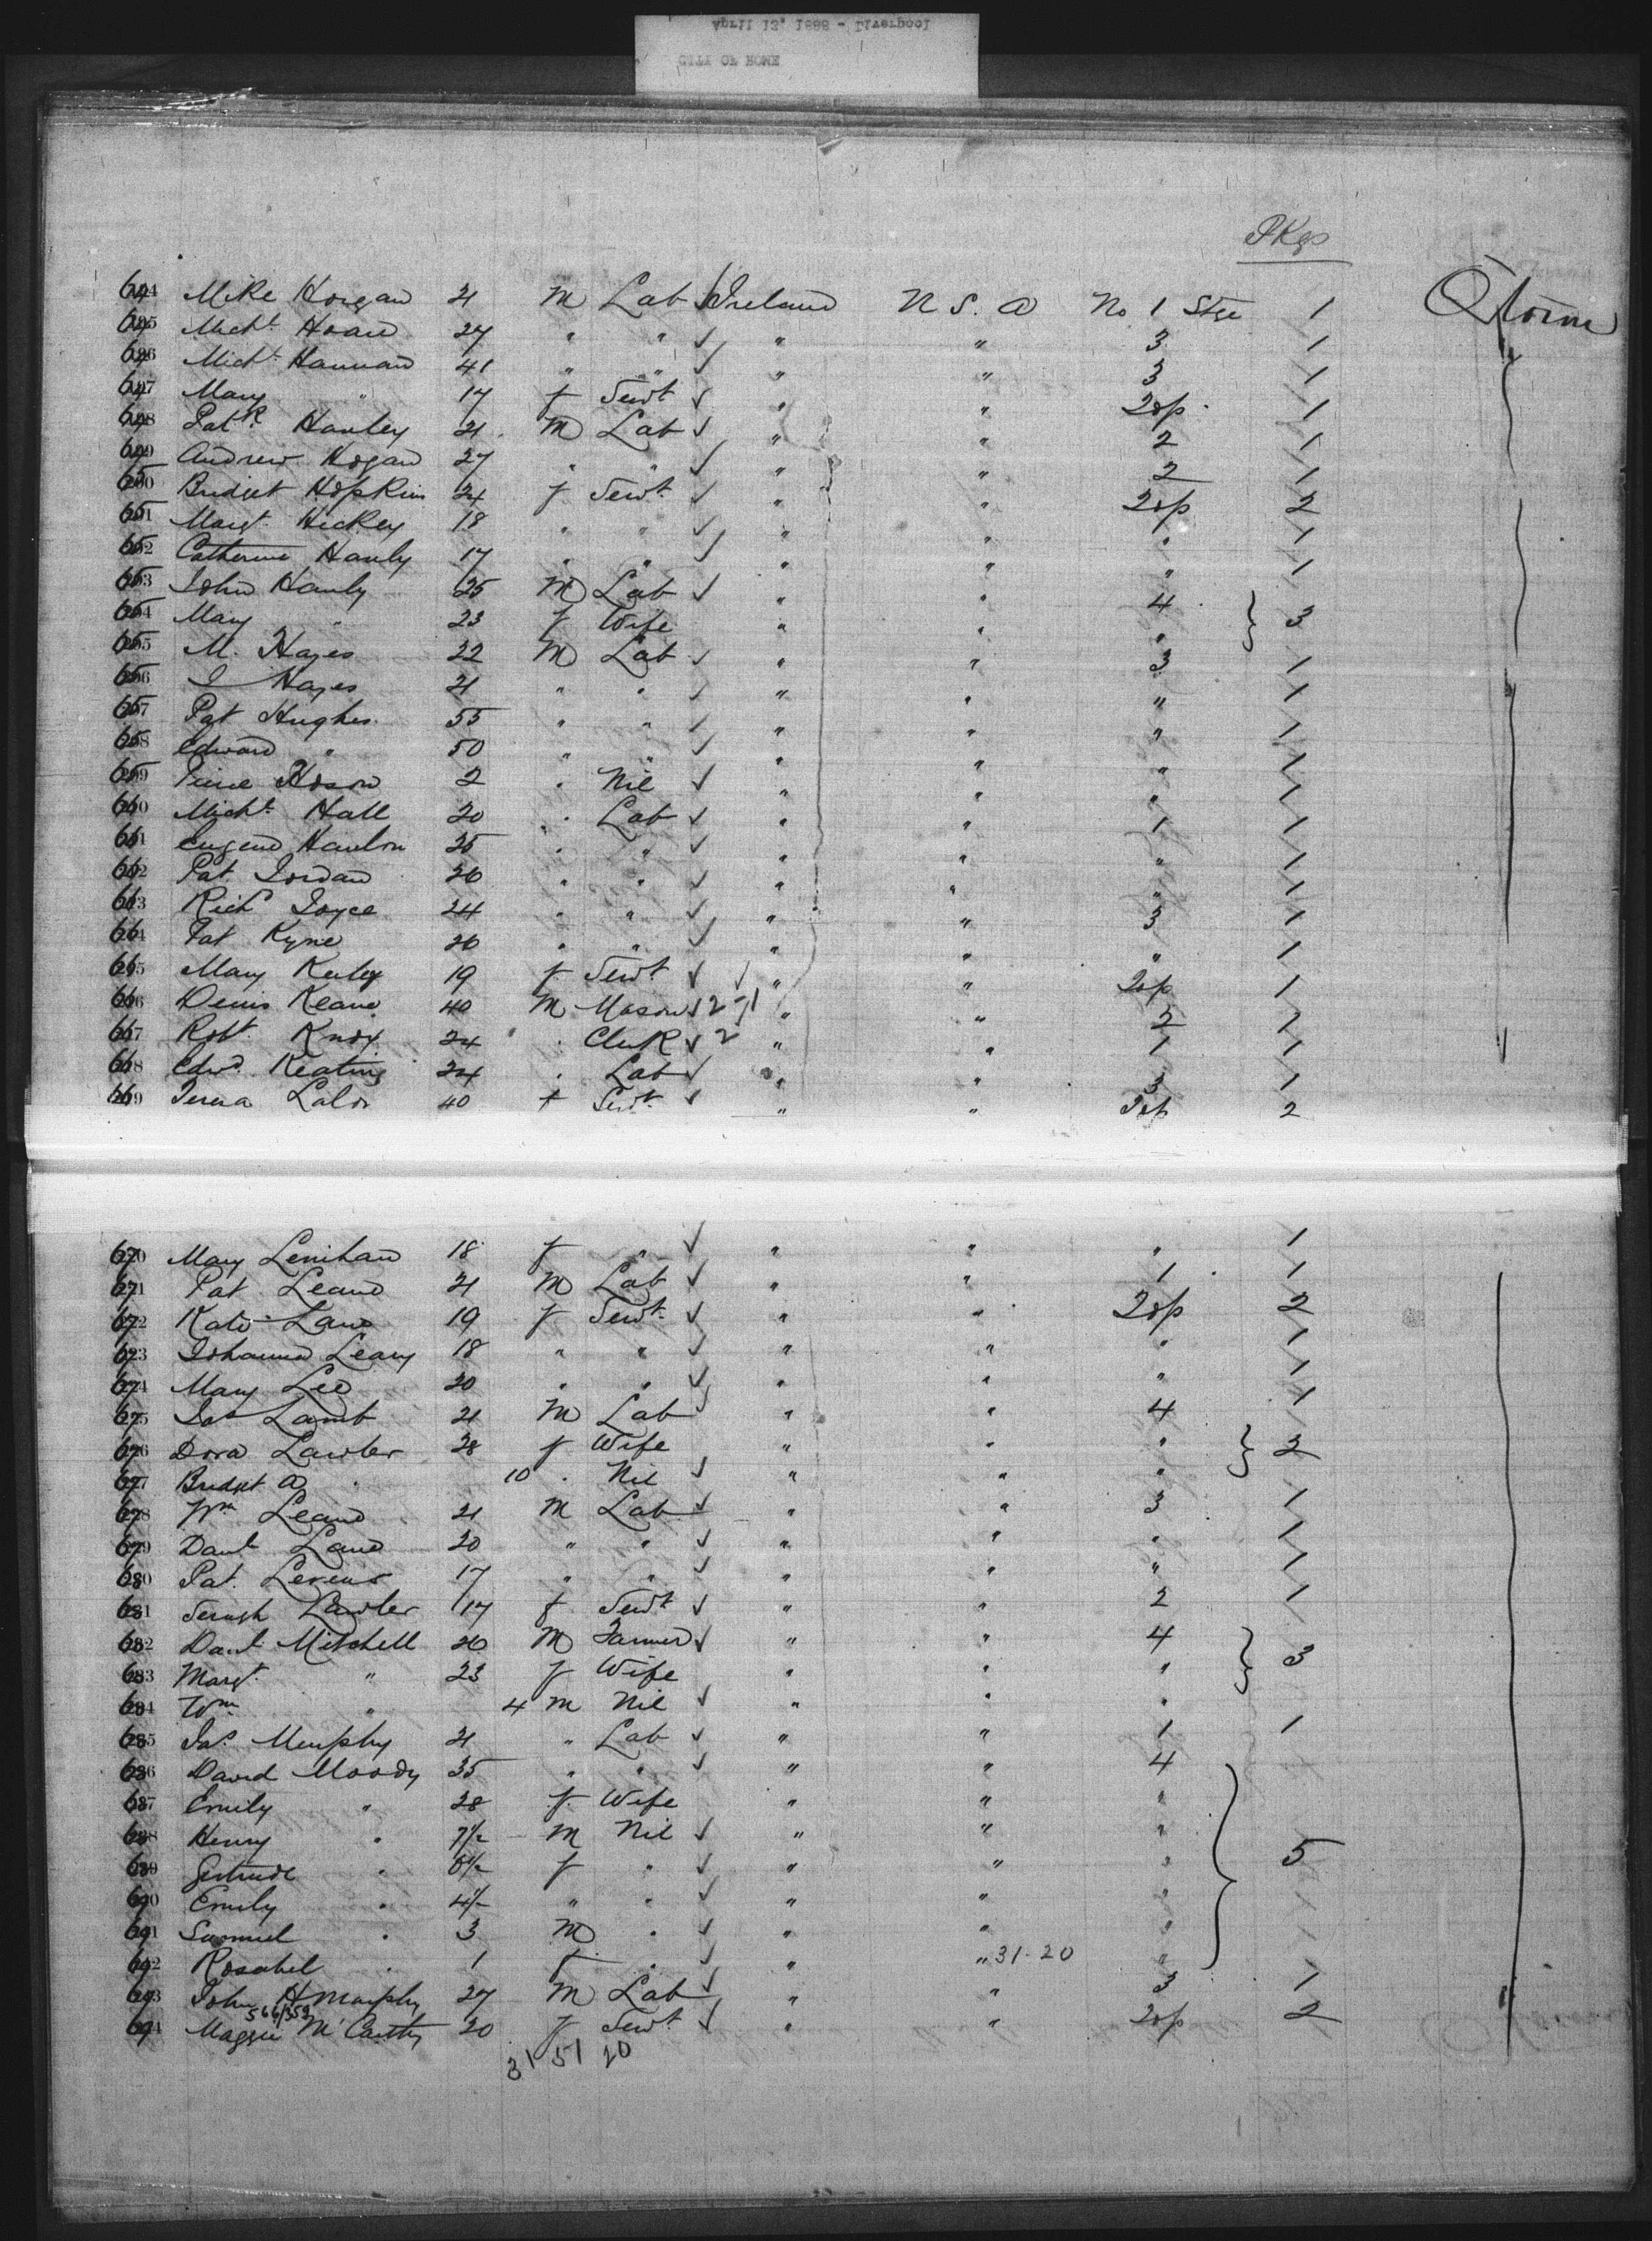 April 13" 1888 - Liverpool
CITY OF ROME
PKgs
644 Mike Horgan 21 m Lab Ireland U S. A No 1 Stge 1 Qtown
645 Michl. Hoare 27 " " " " 3 1
646 Michl. Hannan 41 " " " " 3 1
647 Mary " 17 f Servt " " 2sp 1
648 Patk. Hanley 21 m Lab " " 2 1
649 Andrew Hogan 27 " " " " 2 1
650 Bridget Hopkins 24 f Servt " " 2sp 2
651 Margt. Hickey 18 " " " " " 1
652 Catherine Hanly 17 " " " " " 1
653 John Hanly 25 M Lab " " 4 3
654 Mary " 23 f Wife " " "
655 M. Hayes 22 M Lab " " 3 1
656 J Hayes 21 " " " " " 1
657 Pat Hughes 55 " " " " " 1
658 Edward " 50 " " " " " 1
659 2 " Nil " " " 1
660 Michl. Hall 20 " Lab " " 1 1
661 Eugene Hanlon 25 " " " " " 1
662 Pat Jordan 20 " " " " " 1
663 Richd Joyce 24 " " " " 3 1
664 Pat Kyne 20 " " " " " 1
665 Mary 19 f Servt " " 2sp 1
666 Denis Keane 40 M Mason " " 2 1
667 Robt. Knox 24 " Clerk 2 " " 1 1
668 Edwd. Keating 24 " Lab " " 3 1
669 Teresa Lalor 40 f Servt " " 2sp 2
670 Mary Lenihan 18 f " " " " 1
671 Pat Leane 21 M Lab " " 1 1
672 Kate Lane 19 f Servt " " 2sp 2
673 Johanna Leary 18 " " " " " 1
674 Mary Lee 20 " " " " " 1
675 Jas Lamb 21 M Lab " " 4 1
676 Dora Lawler 28 f Wife " " " 2
677 Bridget A " 10 " Nil " " "
678 Wm Leane 21 M Lab " " 3 1
679 Danl Lane 20 " " " " " 1
680 Pat. 17 " " " " " 1
681 Lawler 17 f Servt " " 2 1
682 Danl. Mitchell 20 M Farmer " " 4 3
683 Margt. " 23 f Wife " " "
684 Wm " 4 m Nil " " "
685 Jas. Murphy 21 " Lab " " 1 1
686 David Moody 35 " " " " 4
687 Emily " 28 f Wife " " "
688 Henry " 7½ M Nil " " "
689 Gertrude " 6½ f " " " " 5
690 Emily " 4½ " " " " "
691 Samuel " 3 M " " " "
692 Rosabel " 1 f " " " 31-20 "
693 John H Murphy 27 M Lab " " 3 1
694 Maggie McCarthy 20 f Servt " " 2sp 2
31 51 20